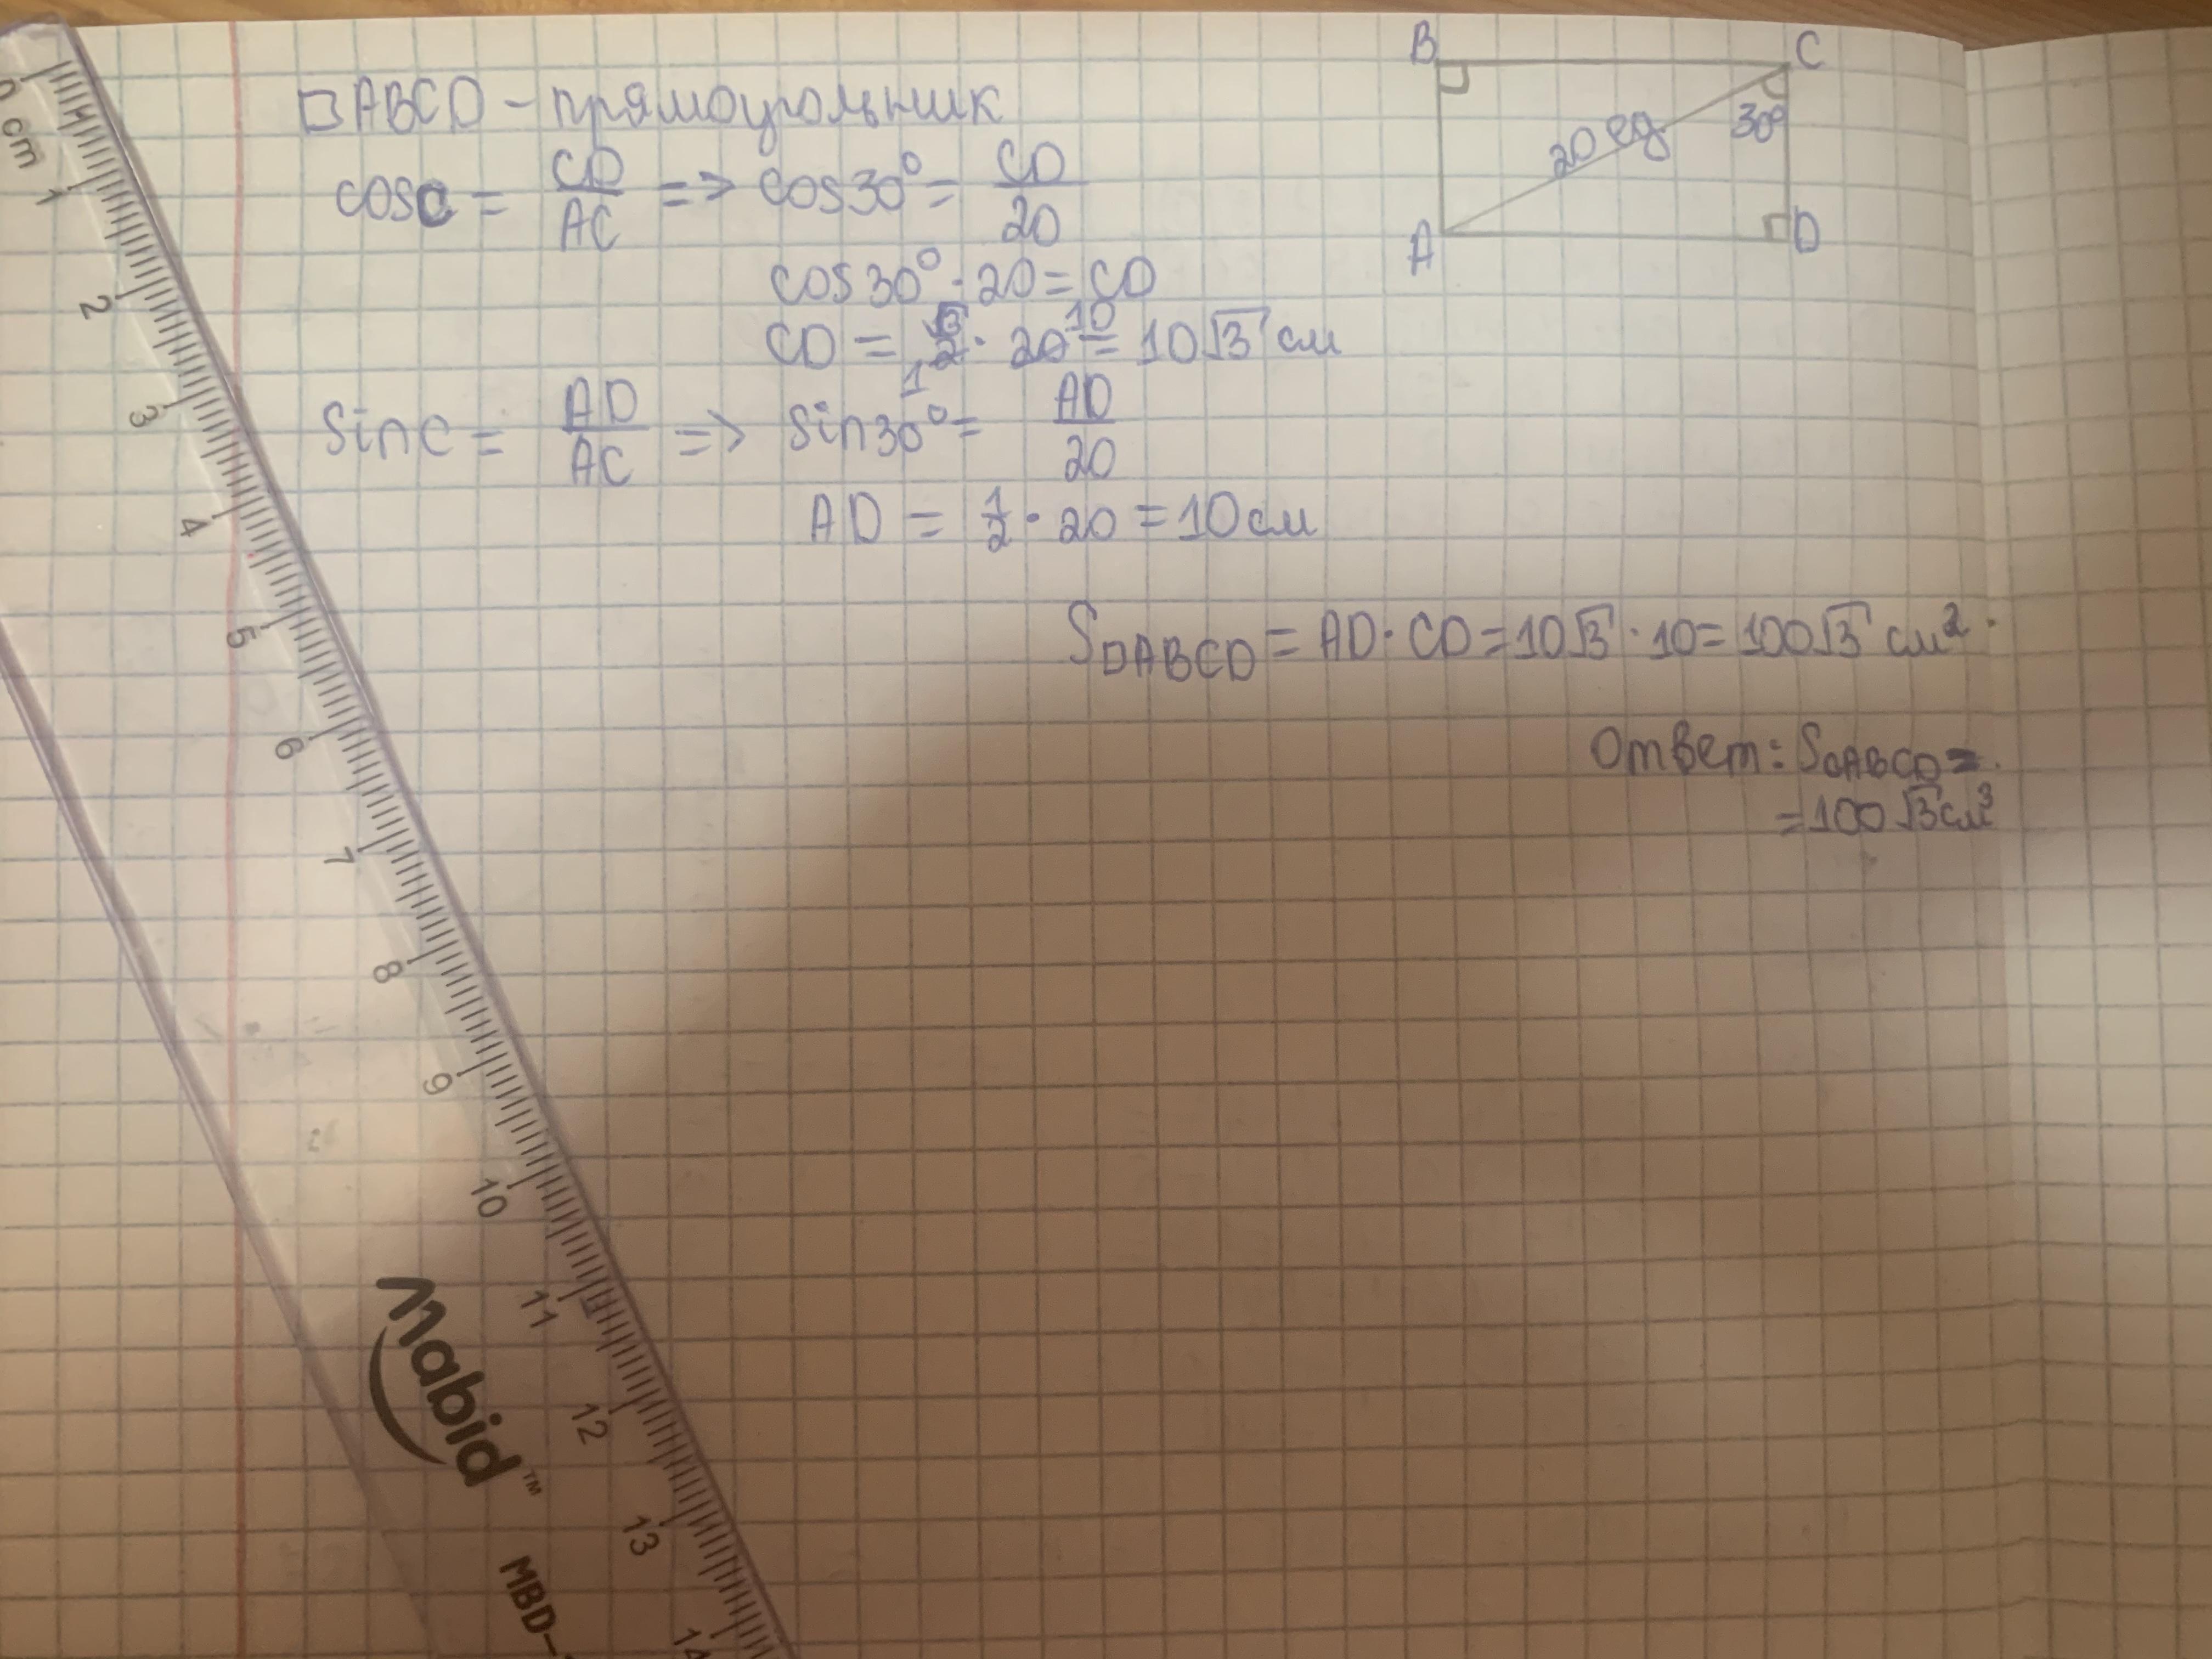 □ABCD - прямоугольник
cosC = CD/AC => cos30° = CD/20
cos30° · 20 = CD
CD = √3/2 · 20 = 10√3 см
1 10
sinC = AD/AC => sin30° = AD/20
AD = 1/2 · 20 = 10 см
S□ABCD = AD · CD = 10√3 · 10 = 100√3 см².
Ответ: S□ABCD =
= 100√3 см³
B C
20 ед 30°
A D
0 cm 1 2 3 4 5 6 7 8 9 10 11 12 13 14
Mabid™
MBD-